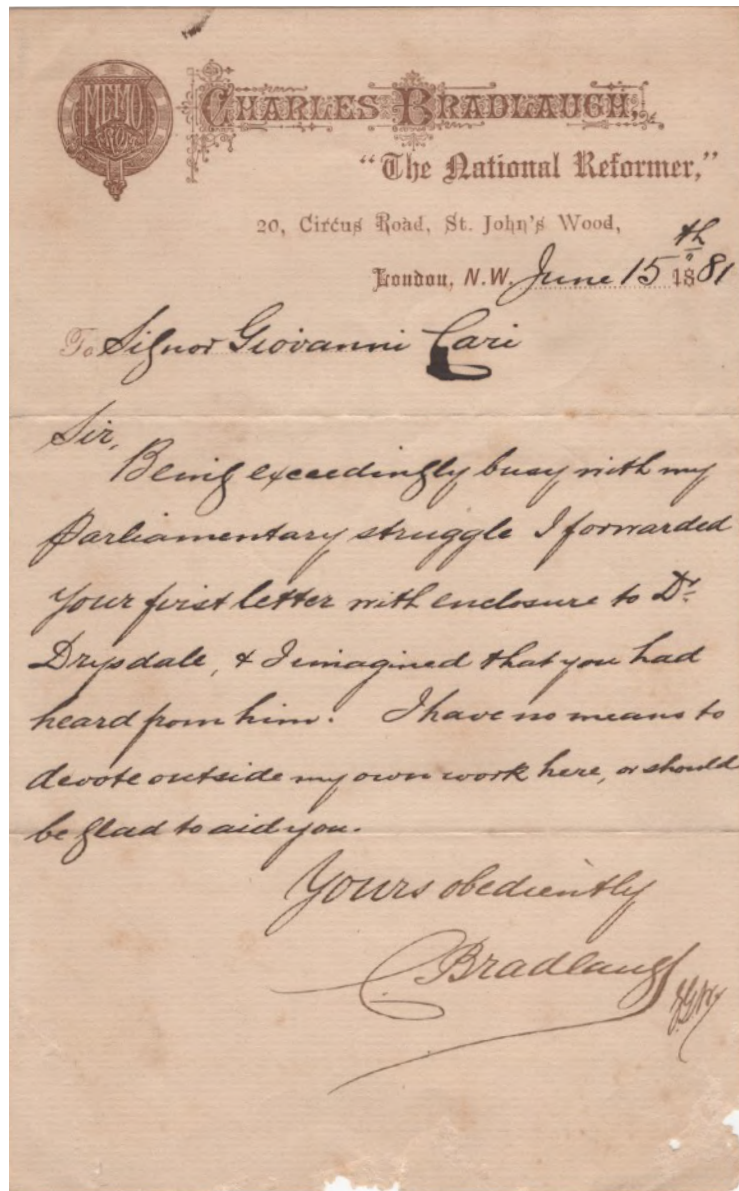 MEMO
FROM
CHARLES BRADLAUGH,
"The National Reformer,"
20, Circus Road, St. John's Wood,
London, N.W. June 15th 1881
To Signor Giovanni Cari
Sir,
Being exceedingly busy with my
Parliamentary struggle I forwarded
your first letter with enclosure to Dr.
Drysdale, & I imagined that you had
heard from him. I have no means to
devote outside my own work here, or should
be glad to aid you.
Yours obediently
C. Bradlaugh